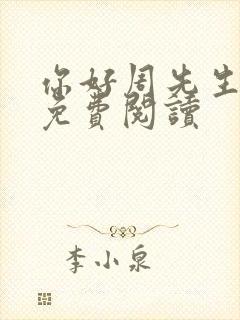 你好周先生
免費閱讀
李小泉